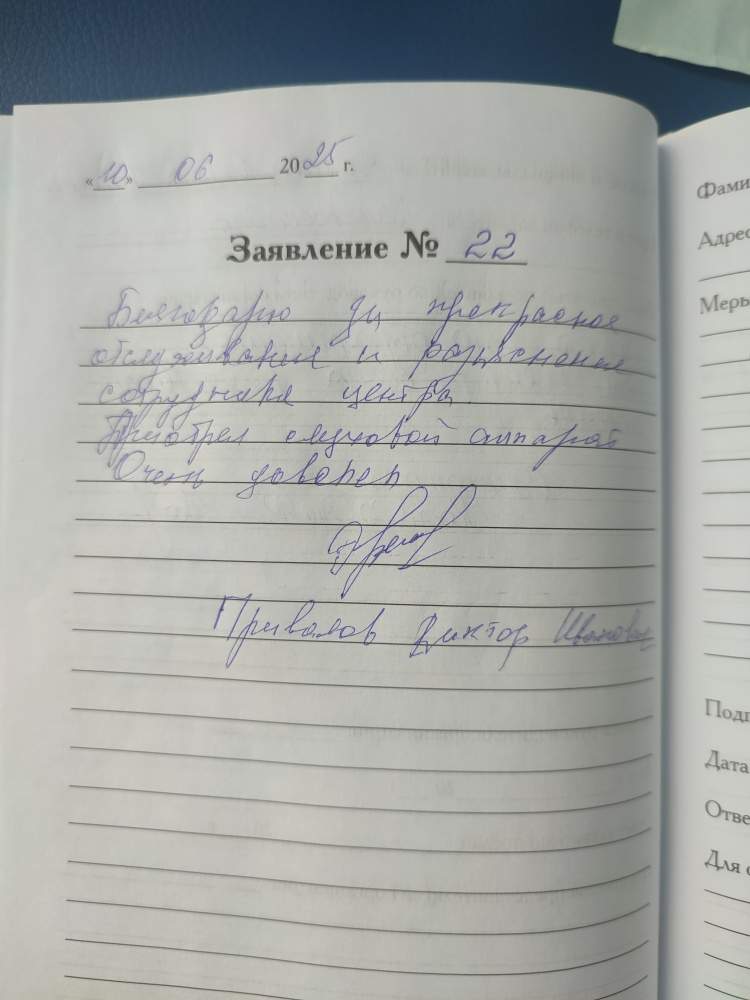 «10» 06 2025 г.
Заявление № 22
Благодарю за прекрасное
обслуживание и разъяснения
сотрудника центра
Приобрел слуховой аппарат
Очень доволен
Привалов Виктор Иванович
Фами
Адрес
Меры
Подп
Дата
Отве
Для о